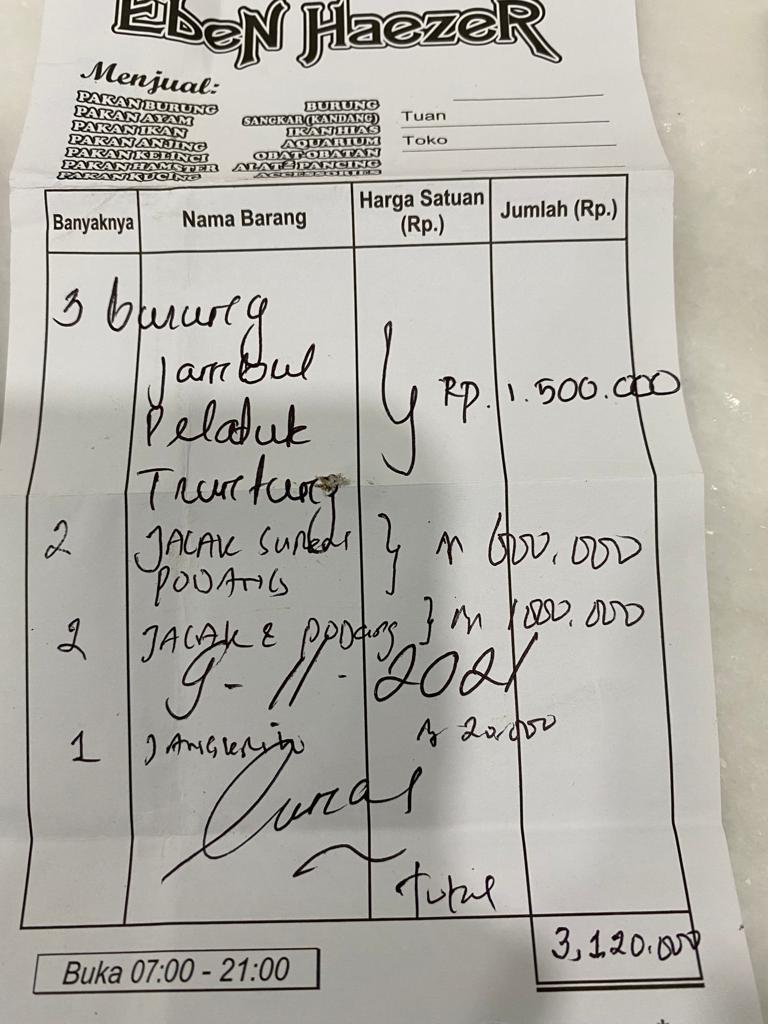 Eben Haezer
Menjual:
PAKAN BURUNG
PAKAN AYAM
PAKAN IKAN
PAKAN ANJING
PAKAN KELINCI
PAKAN HAMSTER
PAKAN KUCING
BURUNG
SANGKAR (KANDANG)
IKAN HIAS
AQUARIUM
OBAT-OBATAN
ALAT2 PANCING
ACCESSORIES
Tuan
Toko
Banyaknya Nama Barang Harga Satuan (Rp.) Jumlah (Rp.)
3 burung
Jambul
Pelatuk
Truntung
RP. 1.500.000
2 JALAK Suren
PODANG
600.000
2 JALAK & PODang 1000.000
9-11-2021
1 JANGKRIK 20.000
Lunas
Total
3,120.000
Buka 07:00 - 21:00